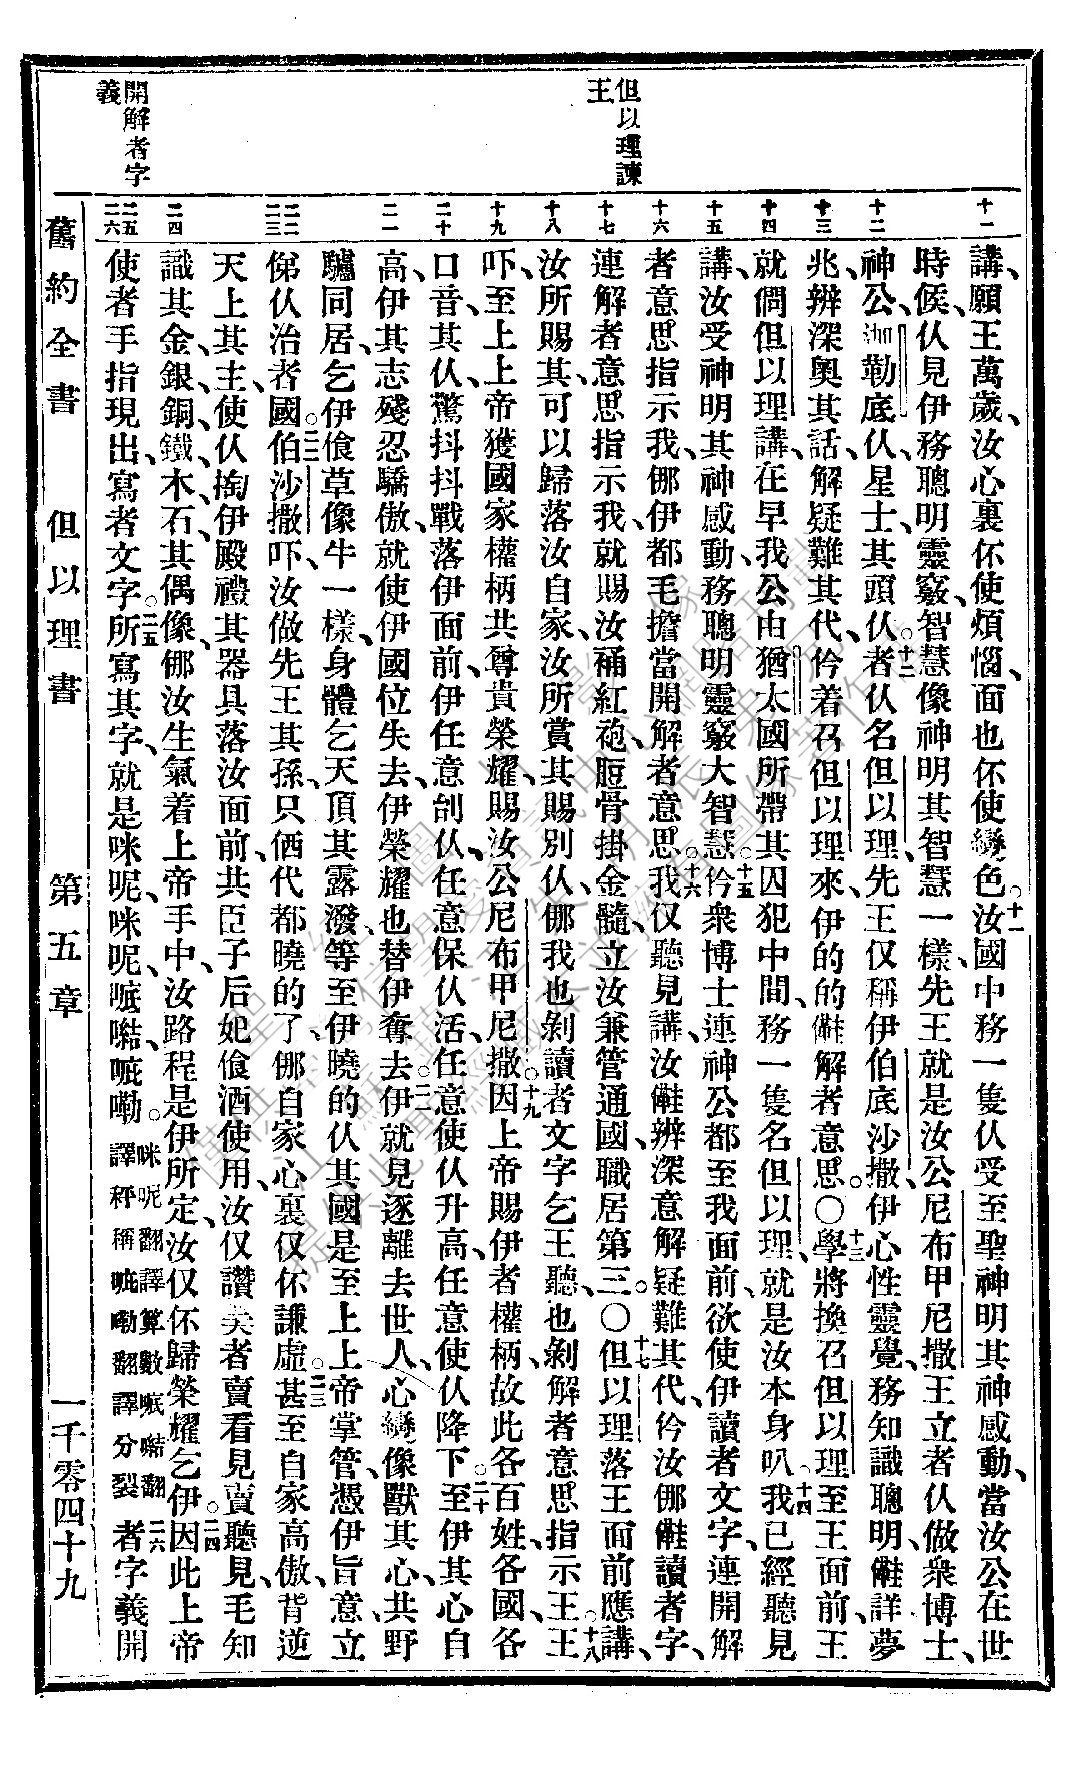 但以理諫
王
開解者字
義
十一
十二
十三
十四
十五
十六
十七
十八
十九
二十
二一
二二
二三
二四
二五
二六
講、願王萬歲、汝心裏伓使煩惱、面也伓使變色。十一汝國中務一隻仈受至聖神明其神感動、當汝公在世
時候、仈見伊務聰明靈竅、智慧像神明其智慧一樣、先王就是汝公尼布甲尼撒王立者仈做衆博士、
神公、迦勒底仈、星士、其頭仈。十二者仈名但以理、先王仅稱伊伯底沙撒、伊心性靈覺、務知識聰明、㒰詳夢
兆、辨深奧其話、解疑難其代、仱着召但以理來、伊的的㒰解者意思。○十三學將換召但以理至王面前、王
就倜但以理講、在早我公由猶太國所帶其囚犯中間、務一隻名但以理、就是汝本身叭。十四我已經聽見
講、汝受神明其神感動、務聰明靈竅大智慧。十五仱衆博士連神公都至我面前、欲使伊讀者文字、連開解
者意思指示我、㑚伊都毛擔當開解者意思。十六我仅聽見講、汝㒰辨深意解疑難其代、仱汝㑚㒰讀者字、
連解者意思指示我、就賜汝䘄紅袍、脰骨掛金髓、立汝兼管通國、職居第三。○十七但以理落王面前應講、
汝所賜其、可以歸落汝自家、汝所賞其賜別仈、㑚我也剝讀者文字乞王聽、也剝解者意思指示王。十八王
吓、至上上帝獲國家權柄共尊貴榮耀、賜汝公尼布甲尼撒。十九因上帝賜伊者權柄、故此各百姓、各國、各
口音、其仈、驚抖抖戰落伊面前、伊任意刣仈、任意保仈活、任意使仈升高、任意使仈降下。二十至伊其心自
高、伊其志殘忍驕傲、就使伊國位失去、伊榮耀也替伊奪去。二一伊就見逐離去世人、心變像獸其心、共野
驢同居、乞伊飡草像牛一樣、身體乞天頂其露潑、等至伊曉的仈其國是至上上帝掌管、憑伊旨意、立
俤仈治者國。二二伯沙撒吓、汝做先王其孫、只儕代都曉的了、㑚自家心裏仅伓謙虛。二三甚至自家高傲、背逆
天上其主、使仈掏伊殿禮其器具落汝面前、共臣子后妃飡酒使用、汝仅讚美者賣看見賣聽見、毛知
識其金、銀、銅、鐵、木、石、其偶像、㑚汝生氣着上帝手中、汝路程是伊所定、汝仅伓歸榮耀乞伊。二四因此上帝
使者手指現出、寫者文字。二五所寫其字、就是咪呢、咪呢、㖡喏、㖡嘞。咪呢翻譯算數㖡喏翻譯秤稱㖡嘞翻譯分裂 二六者字義開
舊約全書 但以理書 第五章 一千零四十九